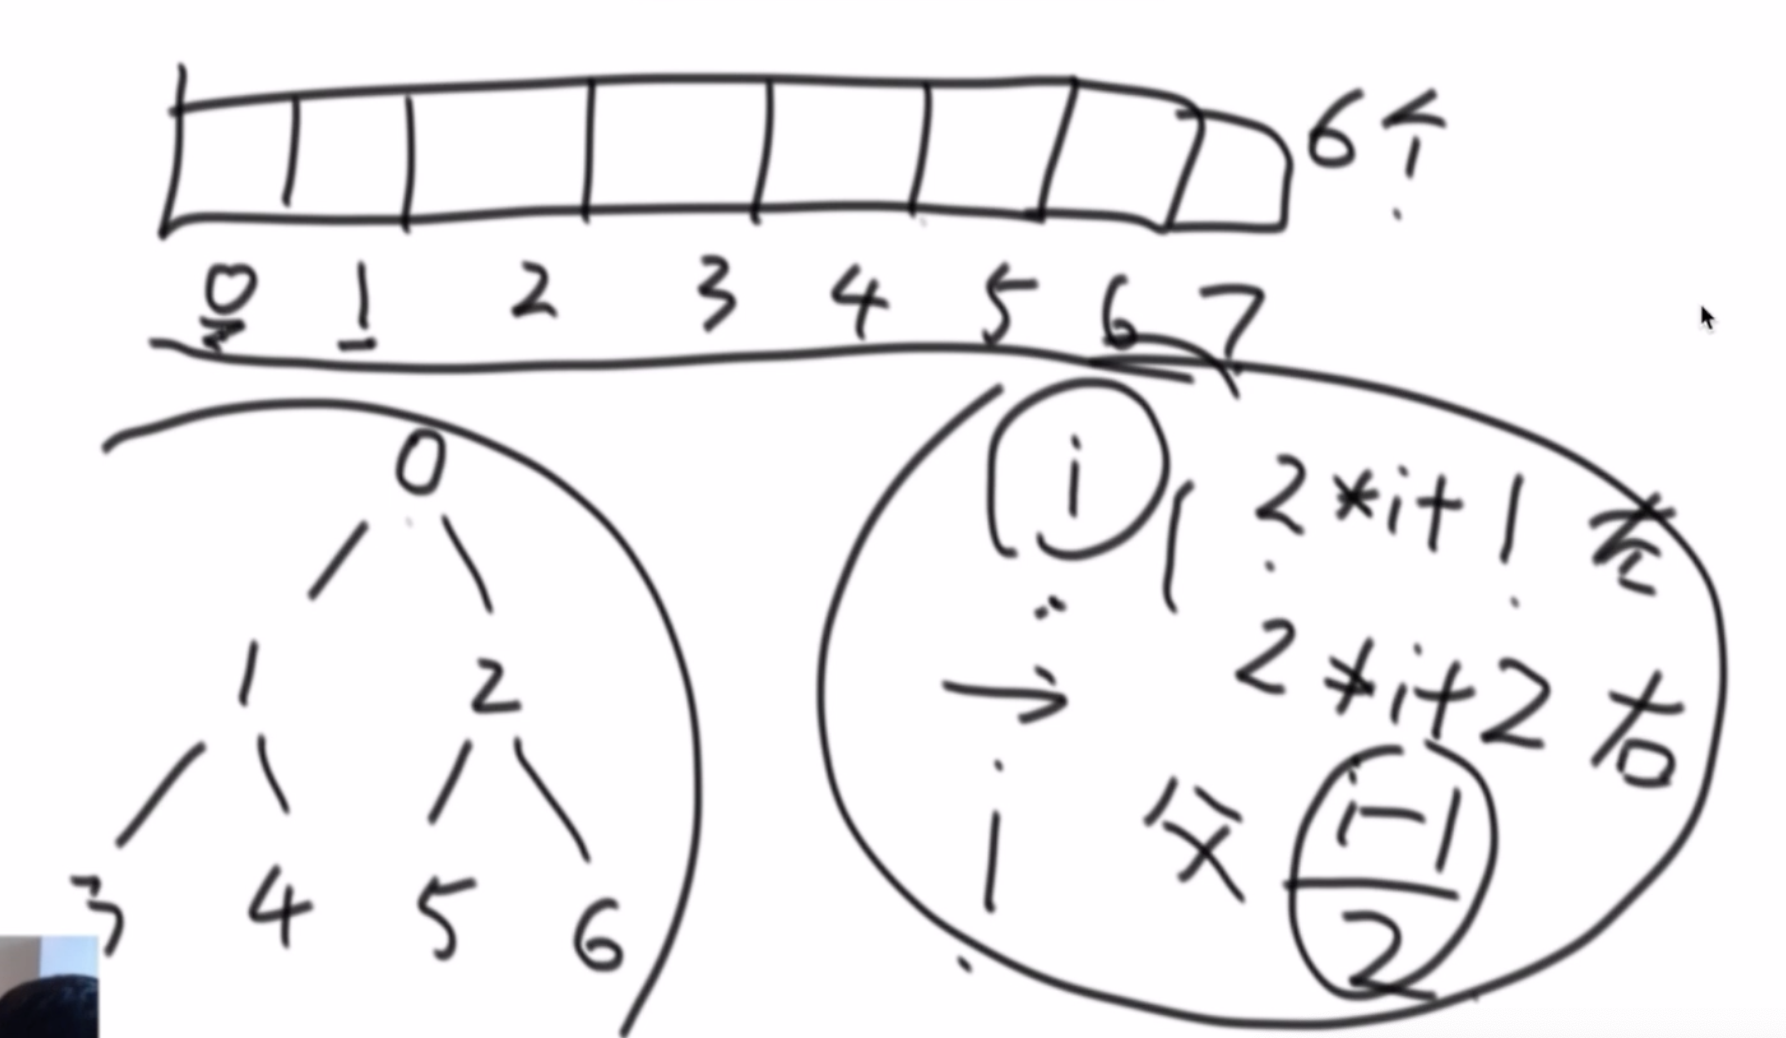 6个
0 1 2 3 4 5 6 7
0
1 2
3 4 5 6
i 2*i+1 左
2*i+2 右
父 i-1
2